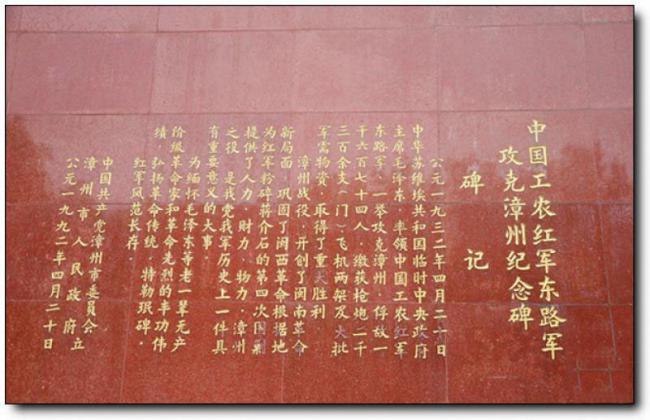 中国工农红军东路军
攻克漳州纪念碑
碑记
公元一九三二年四月二十日
中华苏维埃共和国临时中央政府
主席毛泽东，率领中国工农红军
东路军，一举攻克漳州，俘敌一
千六百七十四人，缴获枪炮二千
三百余支（门）飞机两架及大批
军需物资，取得了重大胜利。
漳州战役，开创了闽南革命
新局面，巩固了闽西革命根据地
为红军粉碎蒋介石的第四次围剿
提供了人力、财力、物力，漳州
之役，是我党我军历史上一件具
有重要意义的大事。
为缅怀毛泽东等老一辈无产
阶级革命家和革命先烈的丰功伟
绩，弘扬革命传统，特勒珉碑，
红军风范长存。
中国共产党漳州市委员会
漳州市人民政府立
公元一九九二年四月二十日